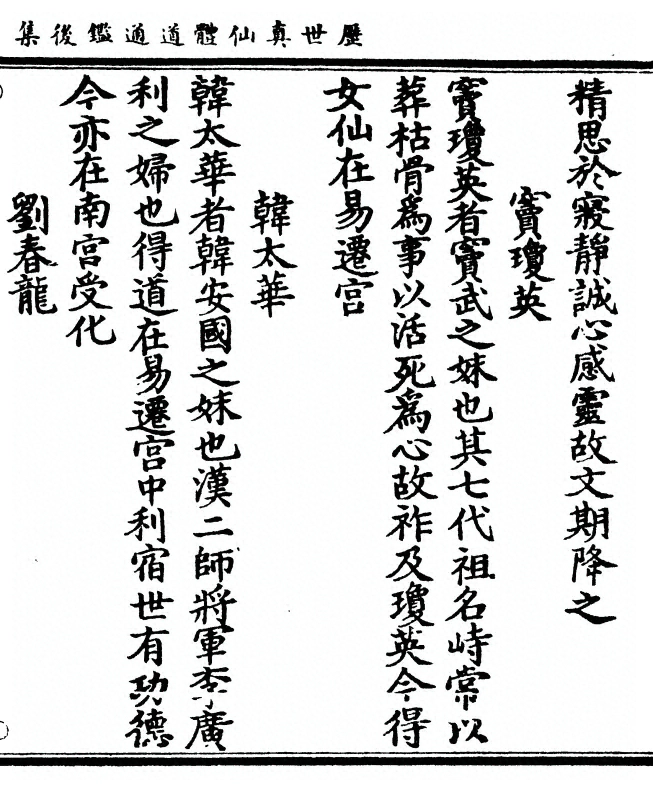 歷世真仙體道通鑑後集
精思於寢靜誠心感靈故文期降之
竇瓊英
竇瓊英者竇武之妹也其七代祖名峙常以
葬枯骨為事以活死為心故祚及瓊英今得
女仙在易遷宮
韓太華
韓太華者韓安國之妹也漢二師將軍李廣
利之婦也得道在易遷宮中利宿世有功德
今亦在南宮受化
劉春龍